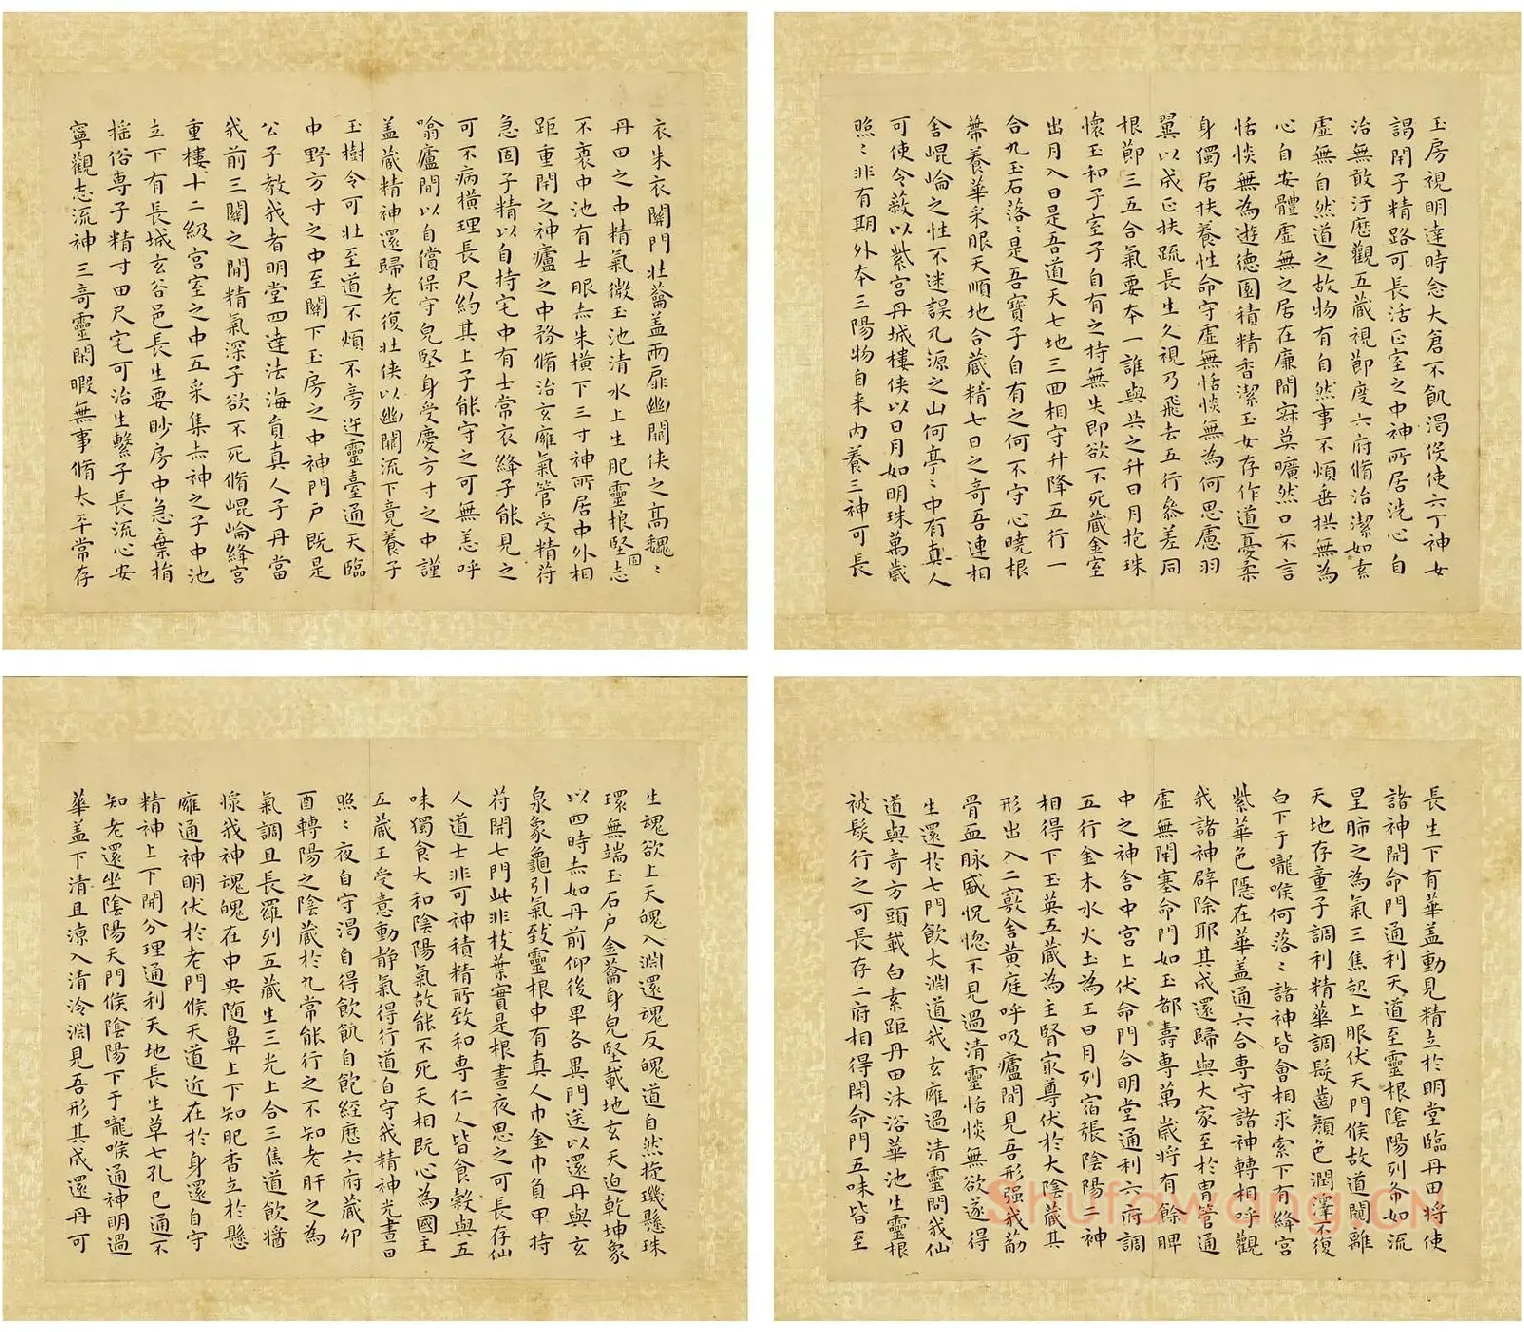 衣朱衣關門壯籥蓋兩扉幽關俠之高巍〻
丹田之中精氣微玉池清水上生肥靈根堅固志
不衰中池有士服赤朱橫下三寸神所居中外相
距重閉之神廬之中務脩治玄廱氣管受精符
急固子精以自持宅中有士常衣絳子能見之
可不病橫理長尺約其上子能守之可無恙呼
噏廬間以自償保守皃堅身受慶方寸之中謹
盖藏精神還歸老復壯俠以幽關流下竟養子
玉樹令可壯至道不煩不旁迕靈臺通天臨
中野方寸之中至關下玉房之中神門戶既是
公子教我者明堂四達法海負真人子丹當
我前三關之間精氣深子欲不死脩崐崙絳宮
重樓十二級宮室之中五采集赤神之子中池
立下有長城玄谷邑長生要眇房中急棄捐
搖俗專子精寸田尺宅可治生繫子長流心安
寧觀志流神三奇靈閑暇無事脩太平常存
玉房視明達時念大倉不飢渴俟使六丁神女
謁閉子精路可長活正室之中神所居洗心自
治無敢汙歷觀五藏視節度六府脩治潔如素
虛無自然道之故物有自然事不煩垂拱無為
心自安體虛無之居在廉間寂莫曠然口不言
恬惔無為遊德園積精香潔玉女存作道憂柔
身獨居扶養性命守虛無恬惔無為何思慮羽
翼以成正扶疏長生久視乃飛去五行參差同
根節三五合氣要本一誰與共之升日月抱珠
懷玉和子室子自有之持無失即欲不死藏金室
出月入日是吾道天七地三四相守升降五行一
合九玉石落〻是吾寶子自有之何不守心曉根
蒂養華采服天順地合藏精七日之奇吾連相
舍崐崙之性不迷誤九源之山何亭〻中有真人
可使令蔽以紫宮丹城樓俠以日月如明珠萬歲
照〻非有期外本三陽物自来內養三神可長
生魂欲上天魄入淵還魂反魄道自然旋璣懸珠
環無端玉石戶金籥身皃堅載地玄天迫乾坤象
以四時赤如丹前仰後卑各異門送以還丹與玄
泉象龜引氣致靈根中有真人巾金巾負甲持
符開七門此非枝葉實是根晝夜思之可長存仙
人道士非可神積精所致和專仁人皆食穀與五
味獨食大和陰陽氣故能不死天相既心為國主
五藏王受意動静氣得行道自守我精神光晝日
照〻夜自守渴自得飲飢自飽經歷六府藏卯
酉轉陽之陰藏於九常能行之不知老肝之為
氣調且長羅列五藏生三光上合三焦道飲醬
懹我神魂魄在中央随鼻上下知肥香立於懸
廱通神明伏於老門候天道近在於身還自守
精神上下開分理通利天地長生草七孔已通不
知老還坐陰陽天門候陰陽下于嚨喉通神明過
華蓋下清且涼入清泠淵見吾形其成還丹可
長生下有華蓋動見精立於明堂臨丹田将使
諸神開命門通利天道至靈根陰陽列布如流
星肺之為氣三焦起上服伏天門候故道闚離
天地存童子調利精華調髮齒顏色潤澤不復
白下于嚨喉何落〻諸神皆會相求索下有絳宮
紫華色隱在華蓋通六合專守諸神轉相呼觀
我諸神辟除耶其成還歸與大家至於胃管通
虛無閉塞命門如玉都壽專萬歲将有餘脾
中之神舍中宮上伏命門合明堂通利六府調
五行金木水火土為王日月列宿張陰陽二神
相得下玉英五藏為主腎家尊伏於大陰藏其
形出入二竅舍黄庭呼吸廬間見吾形强我筋
骨血脉盛怳惚不見過清靈恬惔無欲遂得
生還於七門飲大淵道我玄廱過清靈問我仙
道與奇方頭載白素距丹田沐浴華池生靈根
被髮行之可長存二府相得開命門五味皆至
Shufawang.CN